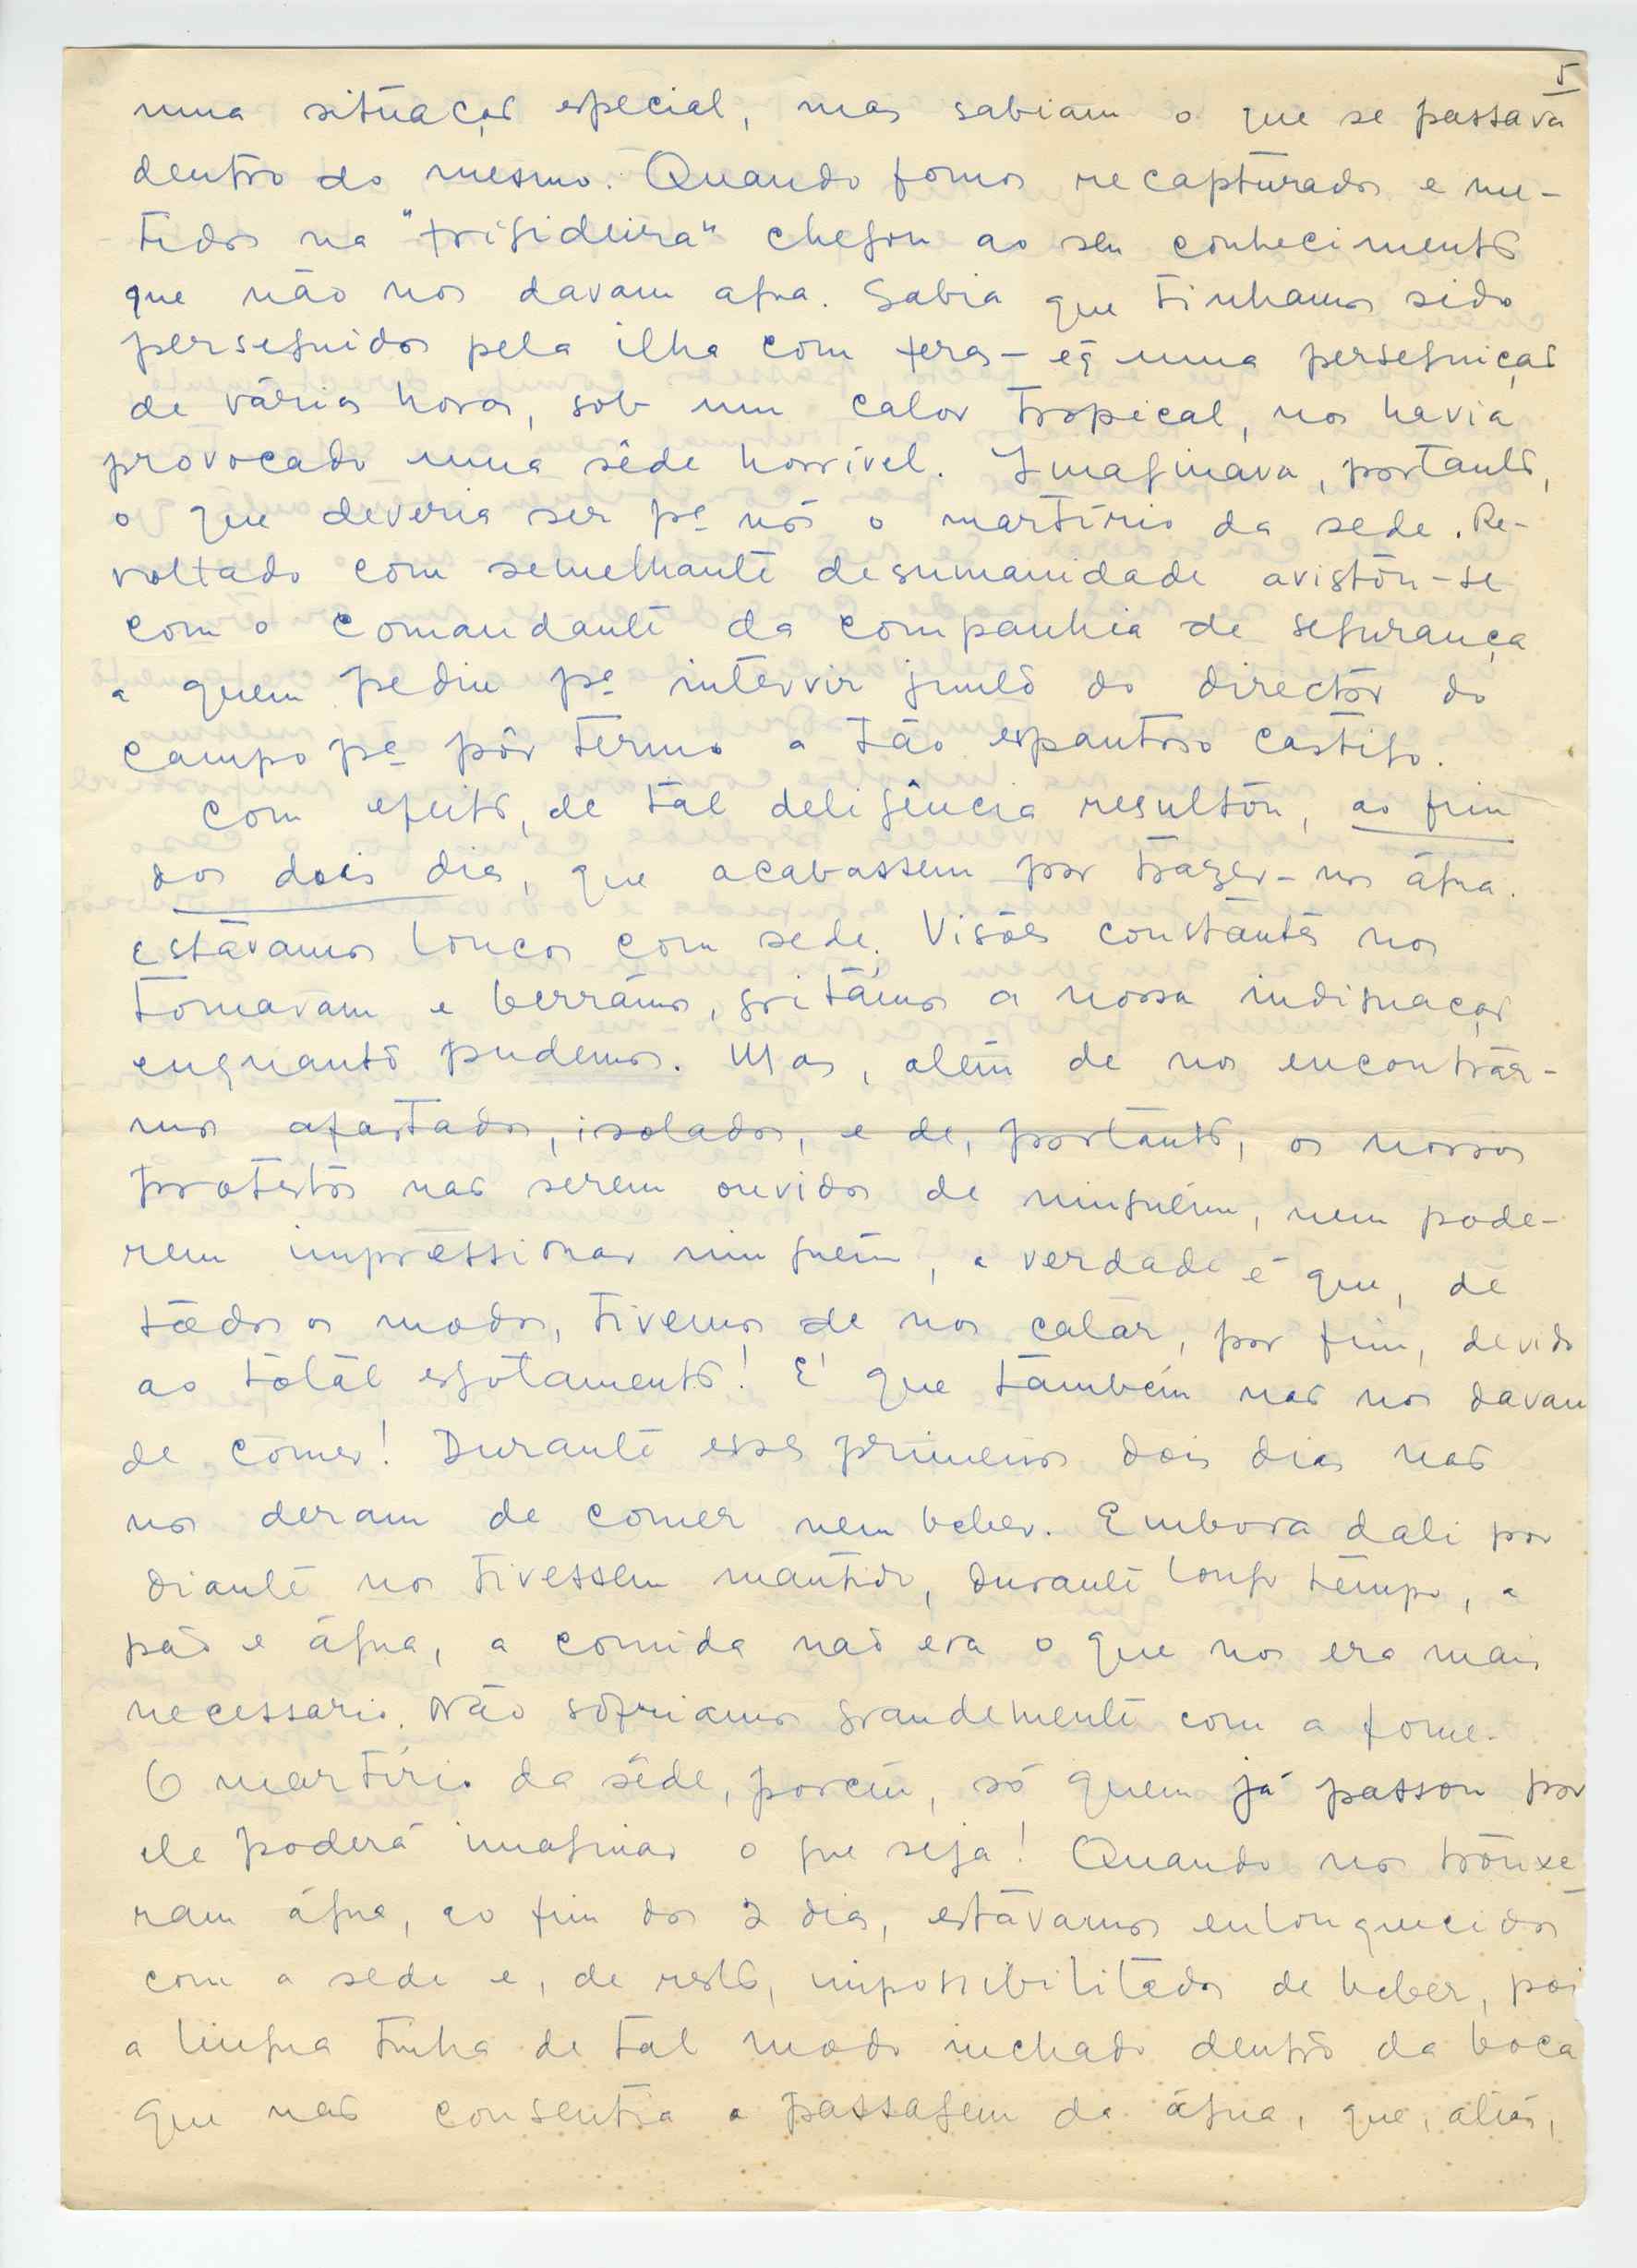 5
numa situação especial, mas sabiam o que se passava
dentro do mesmo. Quando fomos recapturados e me-
tidos na "frigideira" chegou ao seu conhecimento
que não nos davam agua. Sabia que tinhamos sido
perseguidos pela ilha com feras – e q uma perseguição
de várias horas, sob um calor tropical, nos havia
provocado uma sêde horrivel. Imaginava, portanto,
o que deveria ser pª nós o martírio da sede. Re-
voltado com semelhante desumanidade avistou-se
com o comandante da companhia de segurança
a quem pediu pª intervir junto do director do
campo pª pôr termo a tão espantoso castigo.
Com efeito, de tal deligência resultou, ao fim
dos dois dias, que acabassem por trazer-nos água.
Estávamos loucos com sede. Visões constantes nos
tomavam e berrámos, gritámos a nossa indignação
enquanto pudemos. Mas, além de nos encontrár-
mos afastados, isolados, e de, portanto, os nossos
protestos não serem ouvidos de ninguém, nem pode-
rem impressionar ninguém, a verdade é que, de
todos os modos, tivemos de nos calar, por fim, devido
ao total esgotamento! E' que também não nos davam
de comer! Durante esses primeiros dois dias não
nos deram de comer nem beber. Embora dali por
diante nos tivessem mantido, durante longo tempo, a
pão e água, a comida não era o que nos era mais
necessario. Não sofriamos grandemente com a fome.
O martírio da sêde, porém, só quem já passou por
ele poderá imaginar o que seja! Quando nos trouxe-
ram água, ao fim dos 2 dias, estávamos enlouquecidos
com a sede e, de resto, impossibilitados de beber, pois
a lingua tinha de tal modo inchado dentro da boca
que não consentia a passagem da água, que, aliás,